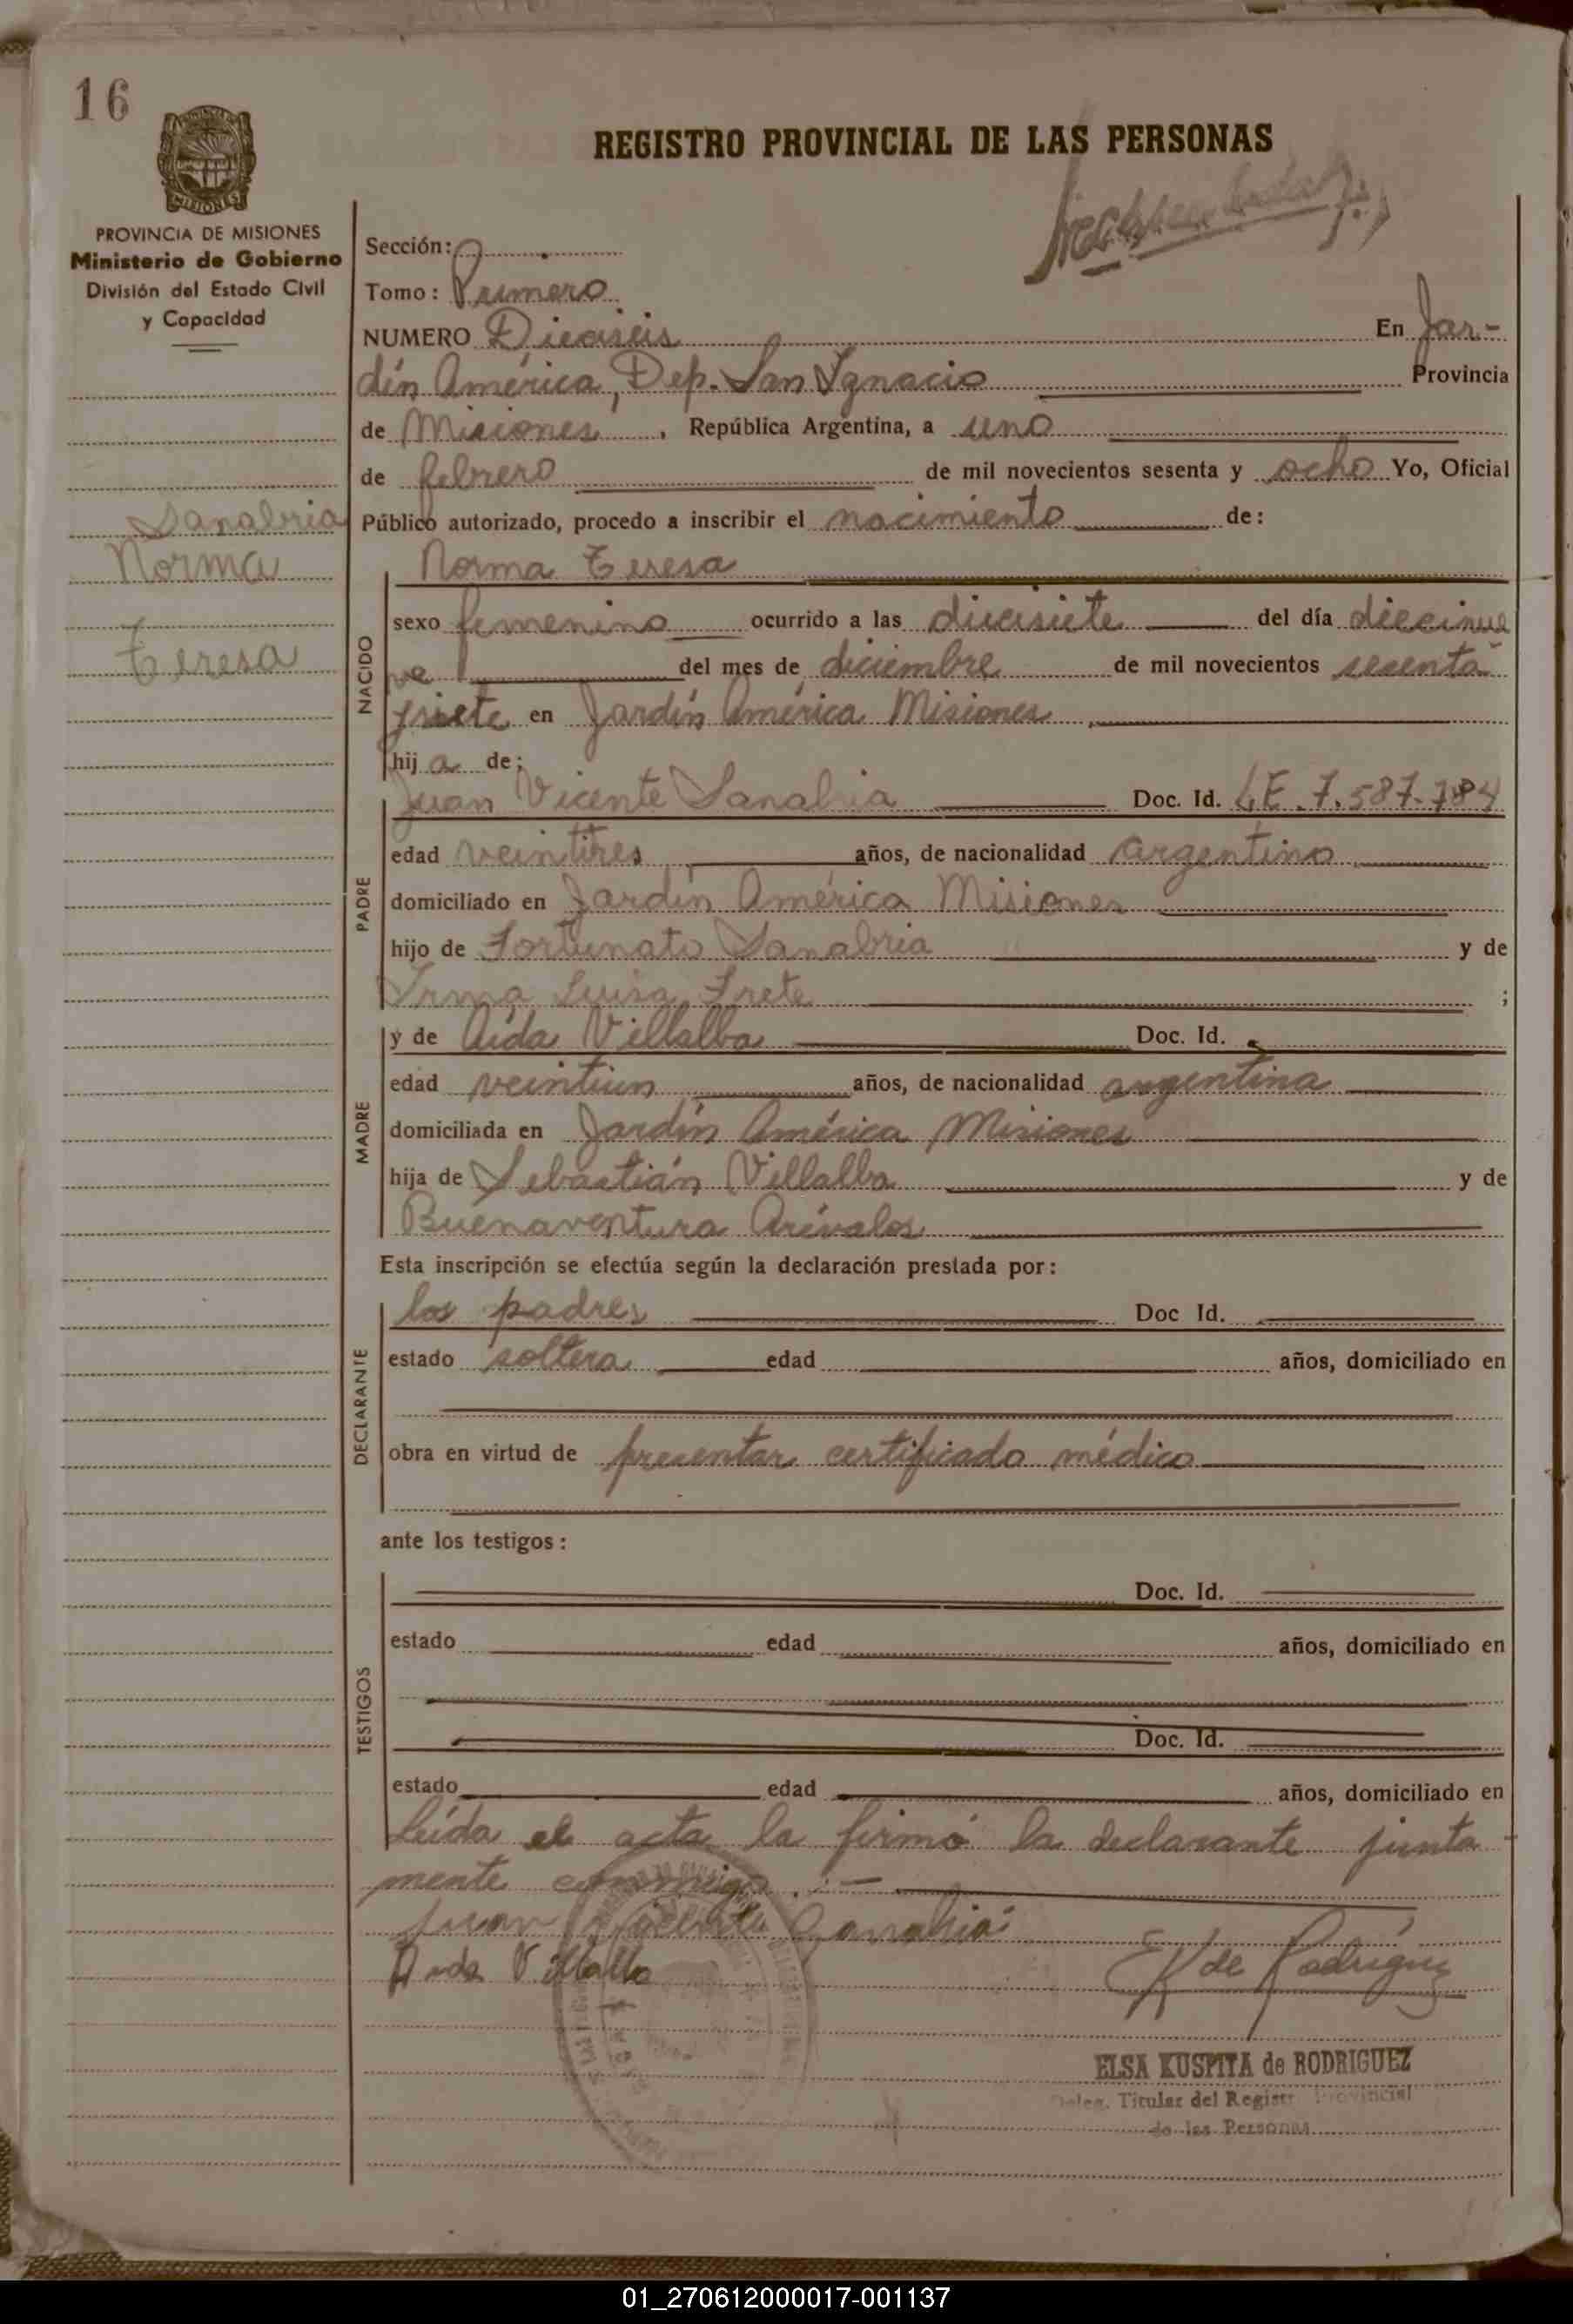 16
REGISTRO PROVINCIAL DE LAS PERSONAS
MISIONES
PROVINCIA DE MISIONES
Ministerio de Gobierno
División del Estado Civil
y Capacidad
Sanabria
Norma
Teresa
Sección:
Tomo: Primero
NUMERO Dieciseis En Jar-
dín América, Dep. San Ignacio Provincia
de Misiones, República Argentina, a uno
de febrero de mil novecientos sesenta y ocho Yo, Oficial
Público autorizado, procedo a inscribir el nacimiento de:
Norma Teresa
NACIDO
sexo femenino ocurrido a las diecisiete del día diecinue
ve del mes de diciembre de mil novecientos sesenta
ysiete en Jardín América Misiones
hij a de:
PADRE
Juan Vicente Sanabria Doc. Id. LE. 7.587.784
edad veintitres años, de nacionalidad argentino
domiciliado en Jardín América Misiones
hijo de Fortunato Sanabria y de
Irma Luisa Frete ;
MADRE
y de Aída Villalba Doc. Id.
edad veintiun años, de nacionalidad argentina
domiciliada en Jardín América Misiones
hija de Sebastián Villalba y de
Buenaventura Arévalos
Esta inscripción se efectúa según la declaración prestada por:
DECLARANTE
los padres Doc Id.
estado soltera edad años, domiciliado en
obra en virtud de presentar certificado médico
ante los testigos:
TESTIGOS
Doc. Id.
estado edad años, domiciliado en
Doc. Id.
estado edad años, domiciliado en
Leída el acta la firmó la declarante junta
mente conmigo.-
Juan Vicente Sanabria
Aida Villalba
EK de Rodríguez
ELSA KUSPITA de RODRIGUEZ
Deleg. Titular del Registr Provincial
de las Personas
01_270612000017-001137